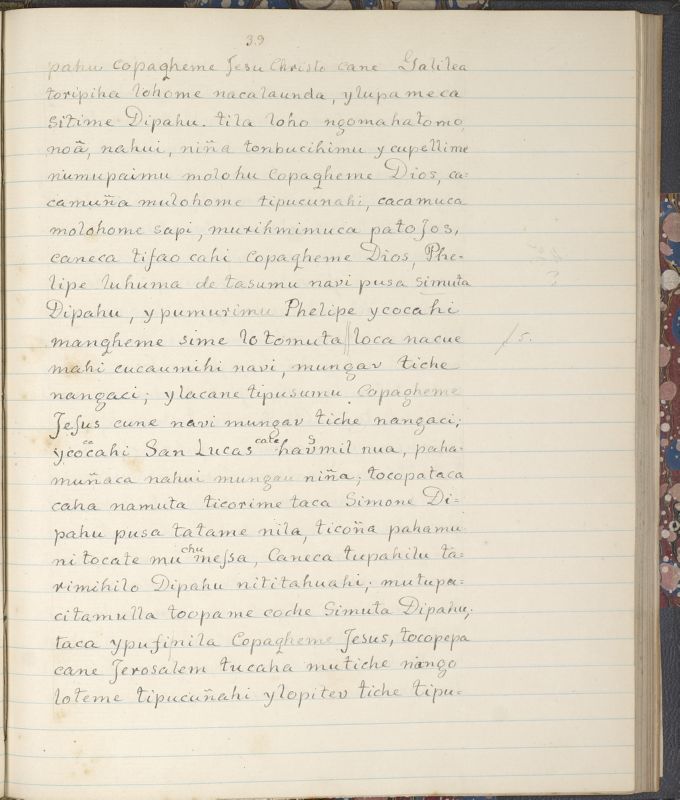 39
pahu copagheme Jesu Christo cane Galilea
toripiha lohome nacalaunda, ylupameca
sitime Dipahu. tila loho ngomahatomo,
noã, nahui, niña tonbucihimu y cupellime
numupaimu molohu Copagheme Dios, ca=
camuña mulohome tipucunahi, cacamuca
molohome sapi, murihmimuca patoJos,
caneca tifao cahi Copagheme Dios, Phe=
lipe luhuma de tasumu navi pusa simuta
Dipahu, y pumurimu Phelipe ycocahi
mangheme sime lotomuta || loca nacue / 5.
mahi cucaumihi navi, mungav tiche
nangaci; ylacane tipusumu Copagheme
Jesus cune navi mungav tiche nangaci;
ycocahi San Lucas havmil nua, paha=
muñaca nahui mungau niña; tocopataca
caha namuta ticorime taca Simone Di=
pahu pusa tatame nila, ticoña pahamu
ni tocate mu chu messa, Caneca tupahilu ta=
rimihilo Dipahu nititahuahi; mutupa=
citamulla toopame coche Simuta Dipahu;
taca ypufinila Copagheme Jesus, tocopepa
cane Jerosalem tucaha mutiche niango
loteme tipucuñahi ylopitev tiche tipu=